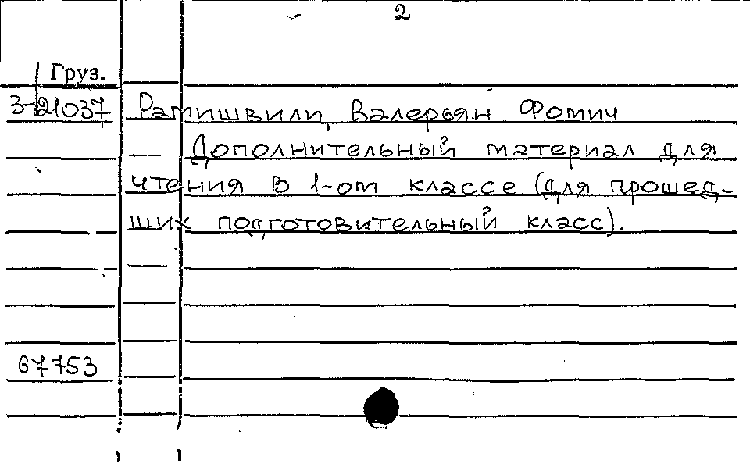 2
Груз.
Рамишвили, Валерьян Фомич
Дополнительный материал для
чтения в 1-ом классе (для прошед-
ших подготовительный класс).
67753